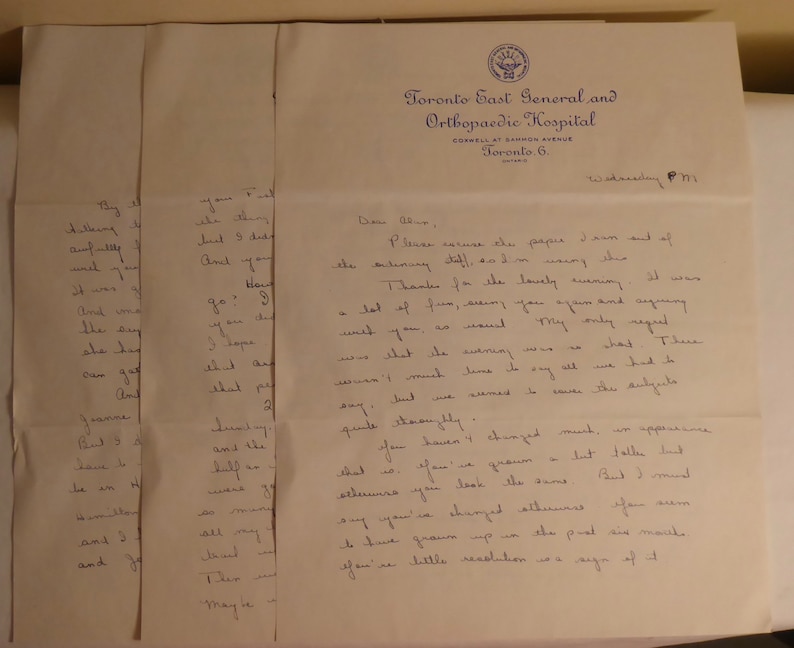 Toronto East General and
Orthopaedic Hospital
COXWELL AT SAMMON AVENUE
Toronto. 6.
ONTARIO
Wednesday PM
Dear Alan,
Please excuse the paper I ran out of
the ordinary stuff, so I'm using this
Thanks for the lovely evening. It was
a lot of fun, seeing you again and arguing
with you, as usual My only regret
was that the evening was so short. There
wasn't much time to say all we had to
say, but we seemed to cover the subjects
quite thoroughly.
You haven't changed much, in appearance
that is. You've grown a bit taller but
otherwise you look the same. But I must
say you've changed otherwise You seem
to have grown up in the past six months.
You're little resolution is a sign of it.
your
the thing
but I didn
And you
How
go? I
you did
I hope
that
that pe
2
Sunday.
and the
half an
were go
so many
all my
Then
Maybe
By th
nothing
awfully
with you
It was g
And
she
she has
can
And
Jeanne
But I
have to
be in H
Hamilton
and I
and Jo